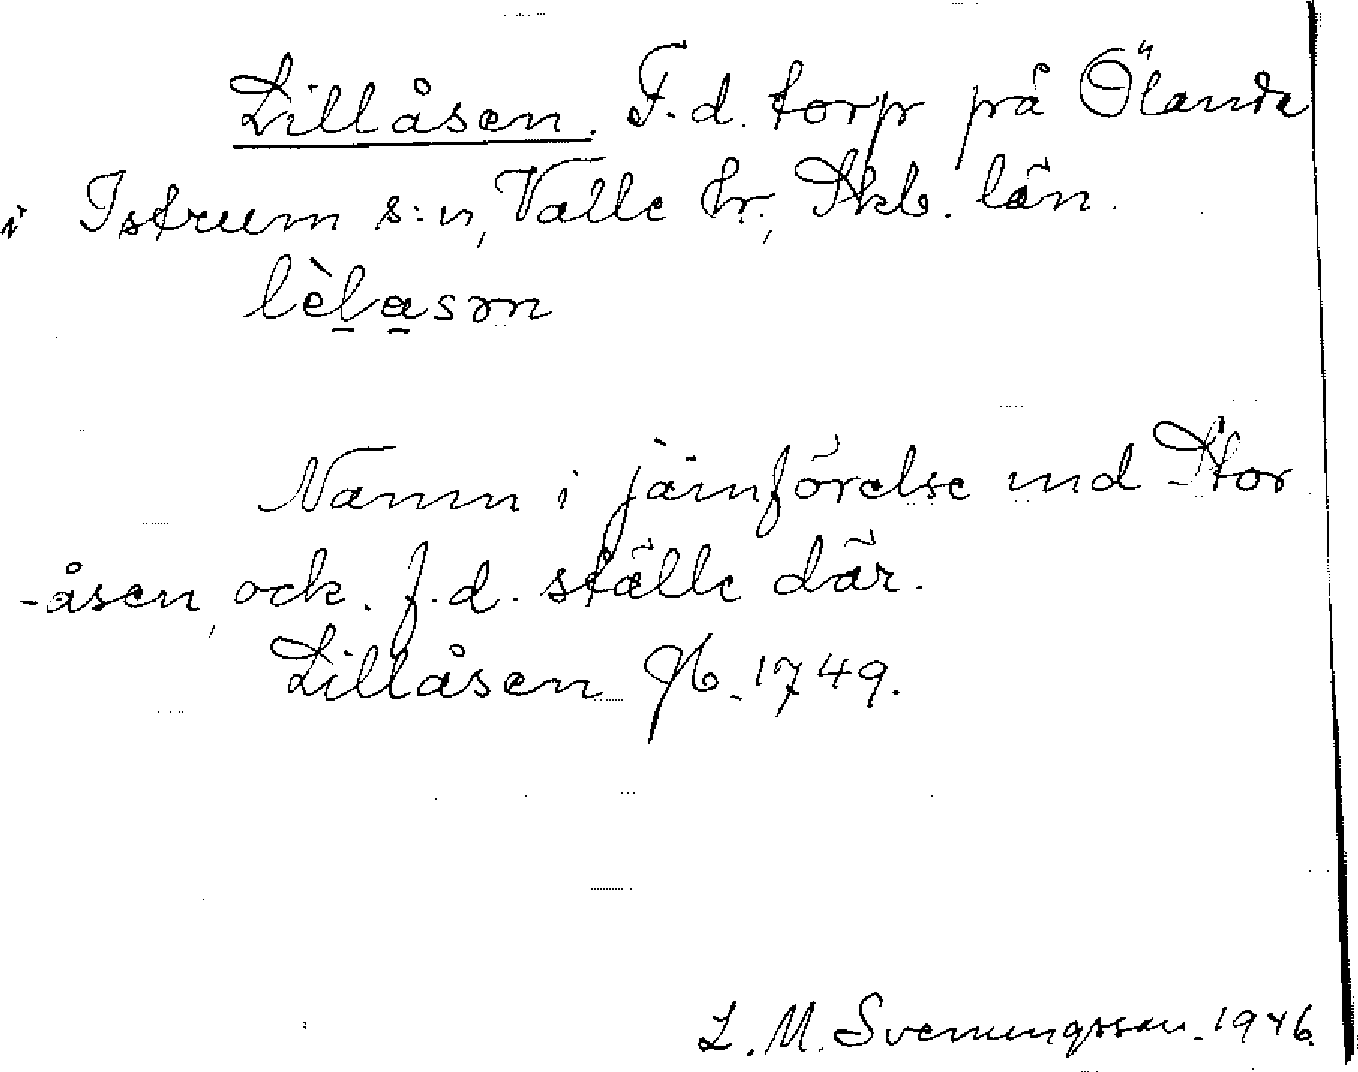 Lillåsen. F.d. torp på Ölanda
i Istrum s:n, Valle hr., Skb. län.
lèlasən
Namn i jämförelse md Stor
-åsen, ock. f.d. ställe där.
Lillåsen Jb. 1749.
L. M. Svenungsson. 1946.